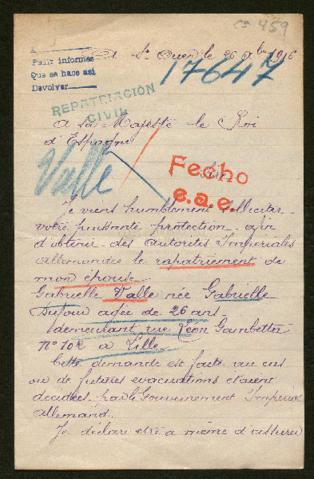 ca 459
A
Pedir informes
Que se hace asi
Devolver
A St Ouen le 26 9bre 1916
17647
REPATRIACIÓN
CIVIL
A Sa Majesté le Roi
d'Espagne
Valle
Fecho
e.a.e.
Je viens humblement solliciter
votre puissante protection afin
d'obtenir des autorités Impériales
allemandes le rapatriement de
mon épouse
Gabrielle Valle née Gabrielle
Dufour agée de 26 ans
demeurant rue Léon Gambetta
No 102 à Lille
Cette demande est faite au cas
où de futures evacuations étaient
décidées par le Gouvernement Impérial
allemand.
Je déclare être a même d'assurer